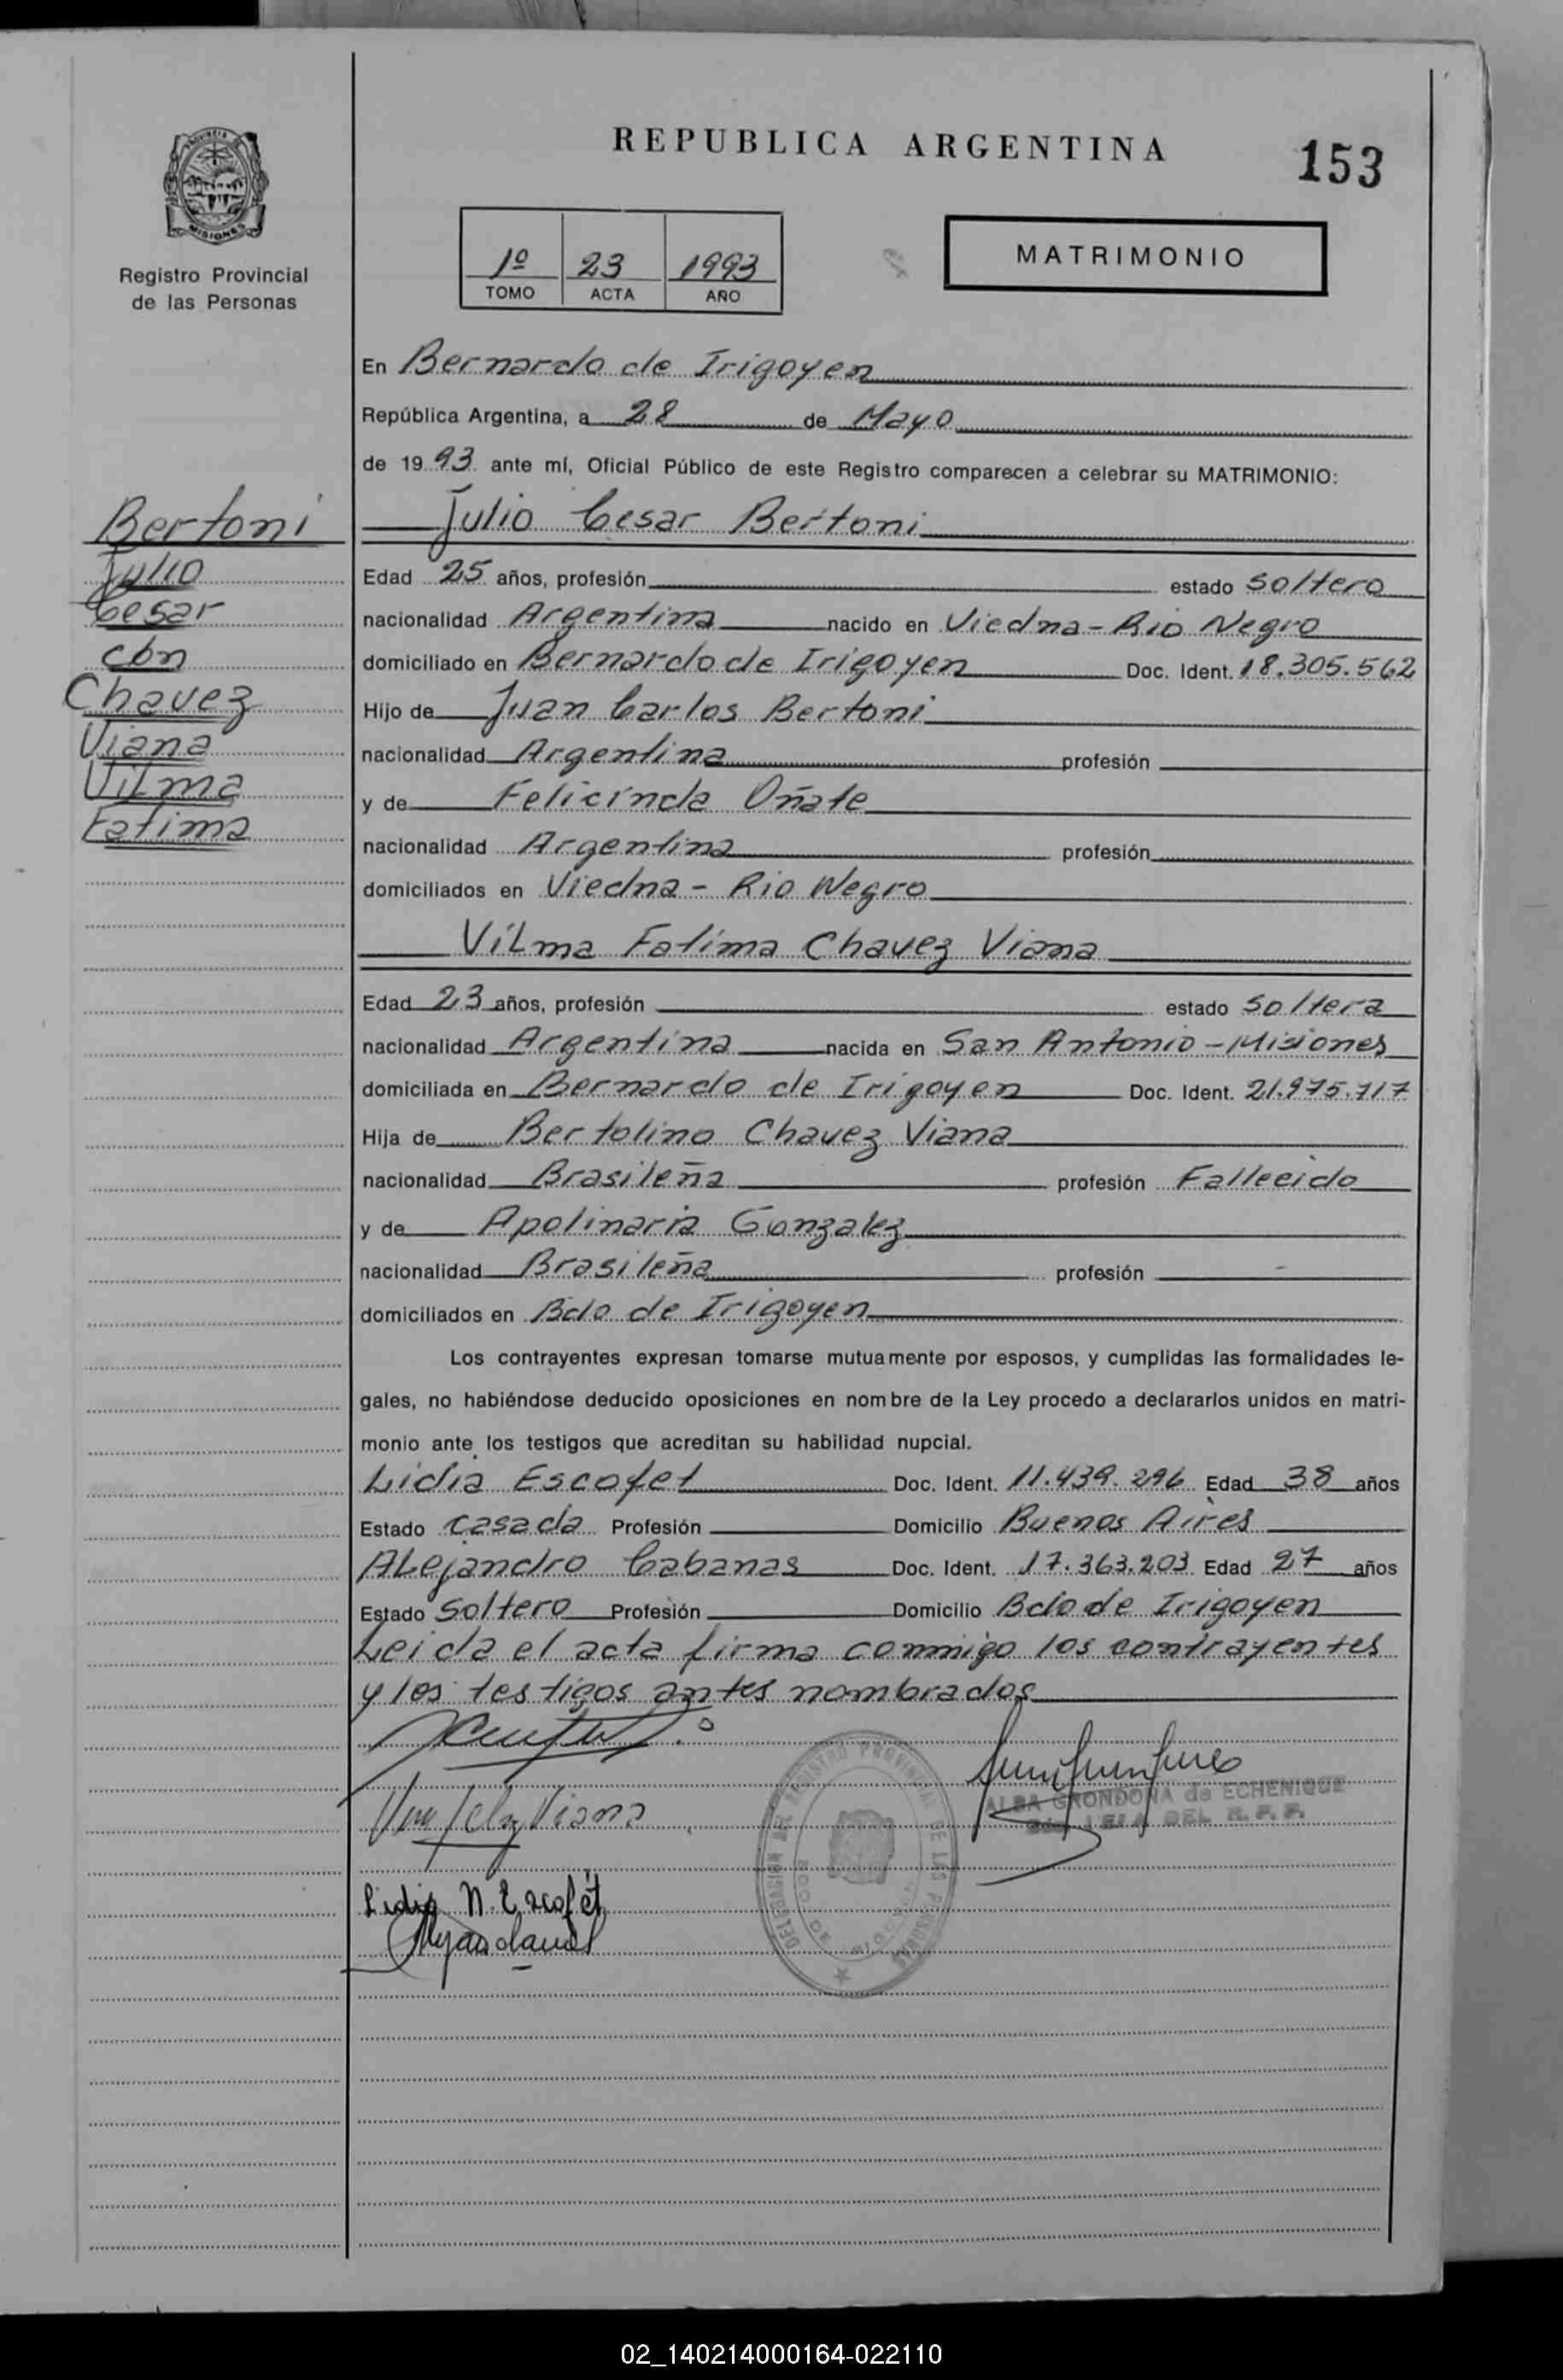 REPUBLICA ARGENTINA
153
PROVINCIA
MISIONES
Registro Provincial
de las Personas
1º 23 1993
TOMO ACTA AÑO
MATRIMONIO
En Bernardo de Irigoyen
República Argentina, a 28 de Mayo
de 19 93 ante mí, Oficial Público de este Registro comparecen a celebrar su MATRIMONIO:
Bertoni
Julio
Cesar
con
Chavez
Viana
Vilma
Fatima
Julio Cesar Bertoni
Edad 25 años, profesión estado soltero
nacionalidad Argentina nacido en Viedma - Rio Negro
domiciliado en Bernardo de Irigoyen Doc. Ident. 18.305.562
Hijo de Juan Carlos Bertoni
nacionalidad Argentina profesión
y de Felicinda Oñate
nacionalidad Argentina profesión
domiciliados en Viedma - Rio Negro
Vilma Fatima Chavez Viana
Edad 23 años, profesión estado soltera
nacionalidad Argentina nacida en San Antonio - Misiones
domiciliada en Bernardo de Irigoyen Doc. Ident. 21.975.717
Hija de Bertolino Chavez Viana
nacionalidad Brasileña profesión Fallecido
y de Apolinaria Gonzalez
nacionalidad Brasileña profesión -
domiciliados en Bdo de Irigoyen
Los contrayentes expresan tomarse mutuamente por esposos, y cumplidas las formalidades le-
gales, no habiéndose deducido oposiciones en nombre de la Ley procedo a declararlos unidos en matri-
monio ante los testigos que acreditan su habilidad nupcial.
Lidia Escofet Doc. Ident. 11.439.296 Edad 38 años
Estado casada Profesión Domicilio Buenos Aires
Alejandro Cabanas Doc. Ident. 17.363.203 Edad 27 años
Estado Soltero Profesión Domicilio Bdo de Irigoyen
Leida el acta firma conmigo los contrayentes
y los testigos antes nombrados
Viana
ALBA GRONDONA de ECHENIQUE
DEL R. P. P.
DELEGACION DEL REGISTRO PROVINCIAL DE LAS PERSONAS
Lidia N. Escofét
02_140214000164-022110